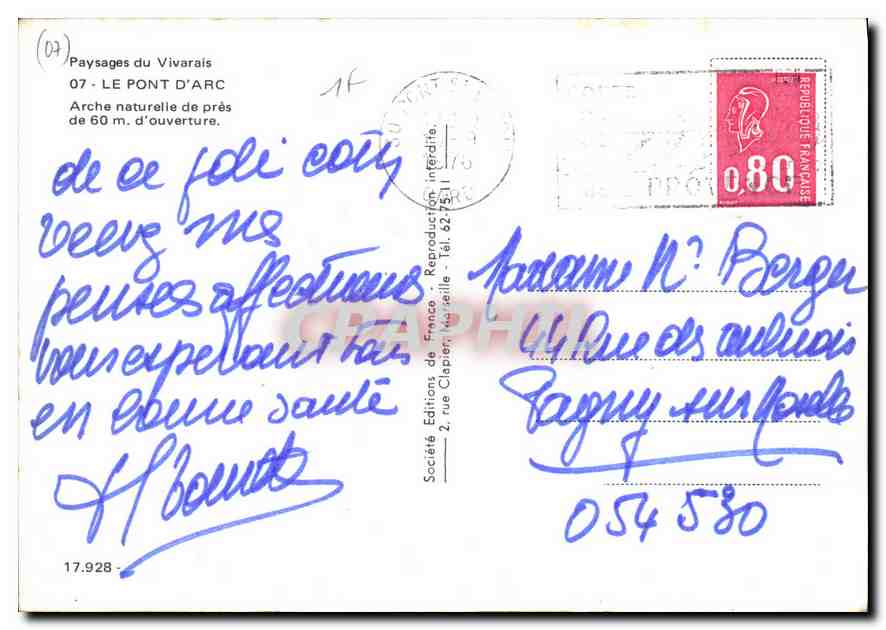 (07)
Paysages du Vivarais
07 - LE PONT D'ARC
Arche naturelle de près
de 60 m. d'ouverture.
1F
PONT ST
76
GARD
REPUBLIQUE FRANÇAISE
0,80
de ce joli coin
recevez mes
pensées affectueuses
vous espérant tous
en bonne santé
17.928 -
Société Editions de France - Reproduction interdite.
2, rue Clapier, Marseille - Tél. 62-75-11
CPAPHIL
Madame Berger
rue des aulnois
Pagny sur Moselle
054 530